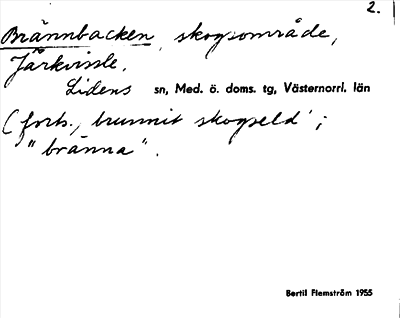 2.
Brännbacken, skogsområde,
Järkvissle.
Lidens sn, Med. ö. doms. tg, Västernorrl. län
(forts., brunnit skogseld' ;
"bränna".
Bertil Flemström 1955